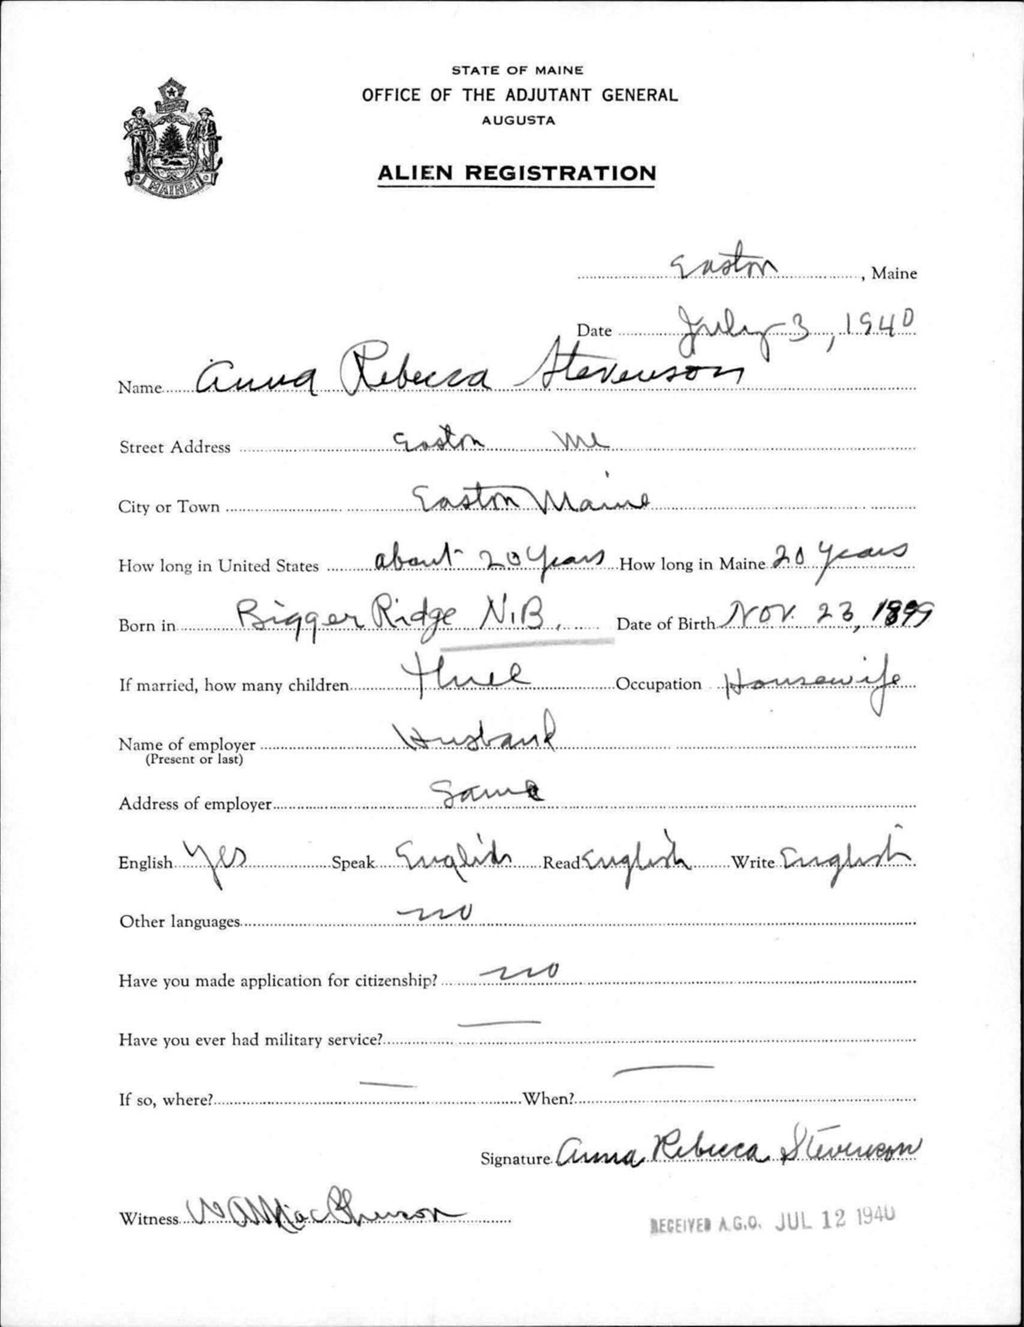 STATE OF MAINE
OFFICE OF THE ADJUTANT GENERAL
AUGUSTA
ALIEN REGISTRATION
MAINE
Easton, Maine
Date July 3, 1940
Name Anna Rebecca Stevenson
Street Address Easton Me
City or Town Easton Maine
How long in United States about 20 years How long in Maine 20 years
Born in Bigger Ridge N.B. Date of Birth Nov. 23, 1899
If married, how many children three Occupation Housewife
Name of employer Husband
(Present or last)
Address of employer Same
English Yes Speak English Read English Write English
Other languages no
Have you made application for citizenship? no
Have you ever had military service? —
If so, where? — When? —
Signature Anna Rebecca Stevenson
Witness MacPherson
RECEIVED A.G.O. JUL 12 1940